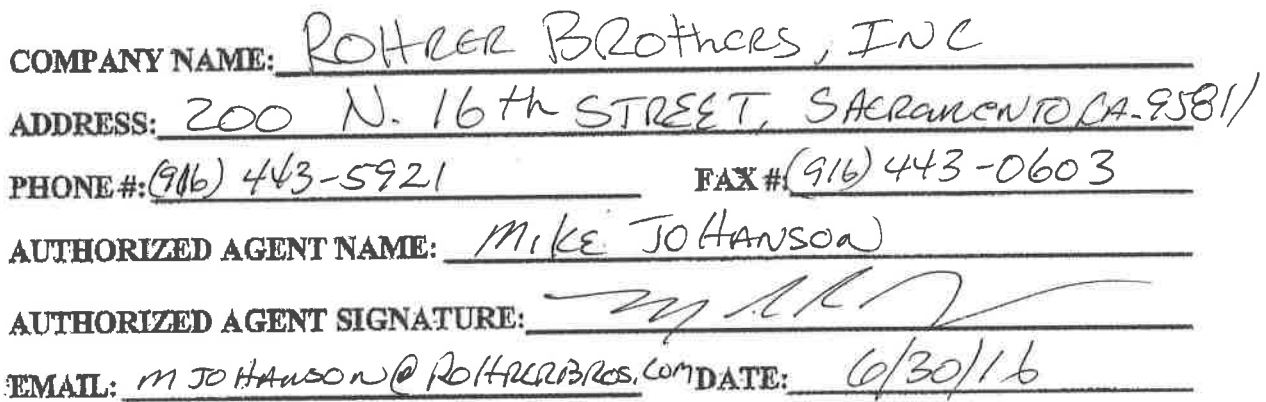 COMPANY NAME: ROHRER BROthERS, INC
ADDRESS: 200 N. 16th STREET, SACRAMENTO CA. 95811
PHONE #: (916) 443-5921 FAX #: (916) 443-0603
AUTHORIZED AGENT NAME: MIKE JOHANSON
AUTHORIZED AGENT SIGNATURE:
EMAIL: MJOHANSON@ROHRERBROS.COM DATE: 6/30/16